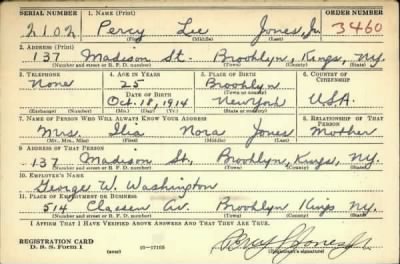 SERIAL NUMBER 1. NAME (Print) ORDER NUMBER
2102 Percy Lee Jones, Jr. 3460
(First) (Middle) (Last)
2. ADDRESS (Print)
137 Madison St. Brooklyn, Kings, N.Y.
(Number and street or R. F. D. number) (Town) (County) (State)
3. TELEPHONE 4. AGE IN YEARS 5. PLACE OF BIRTH 6. COUNTRY OF CITIZENSHIP
None 25 Brooklyn
DATE OF BIRTH (Town or county)
Oct. 18, 1914 New York U.S.A.
(Exchange) (Number) (Mo.) (Day) (Yr.) (State or country)
7. NAME OF PERSON WHO WILL ALWAYS KNOW YOUR ADDRESS 8. RELATIONSHIP OF THAT PERSON
Mrs. Nora Jones Mother
(Mr., Mrs., Miss) (First) (Middle) (Last)
9. ADDRESS OF THAT PERSON
137 Madison St, Brooklyn, Kings, N.Y.
(Number and street or R. F. D. number) (Town) (County) (State)
10. EMPLOYER'S NAME
George W. Washington
11. PLACE OF EMPLOYMENT OR BUSINESS
514 Classen Av. Brooklyn Kings N.Y.
(Number and street or R. F. D. number) (Town) (County) (State)
I AFFIRM THAT I HAVE VERIFIED ABOVE ANSWERS AND THAT THEY ARE TRUE.
REGISTRATION CARD
D. S. S. FORM 1 (over) 16-17105 (Registrant's signature)